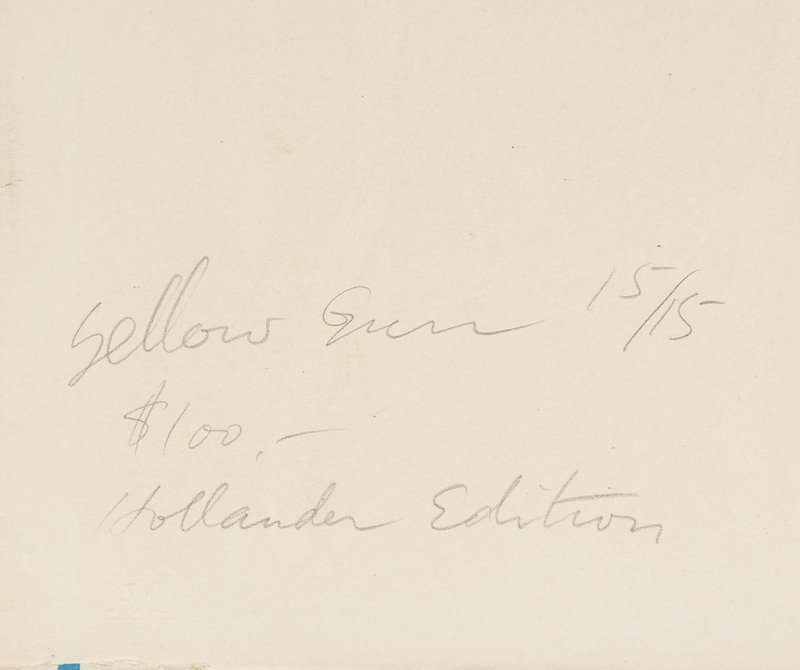 yellow 15/15
$100.—
Hollander Edition